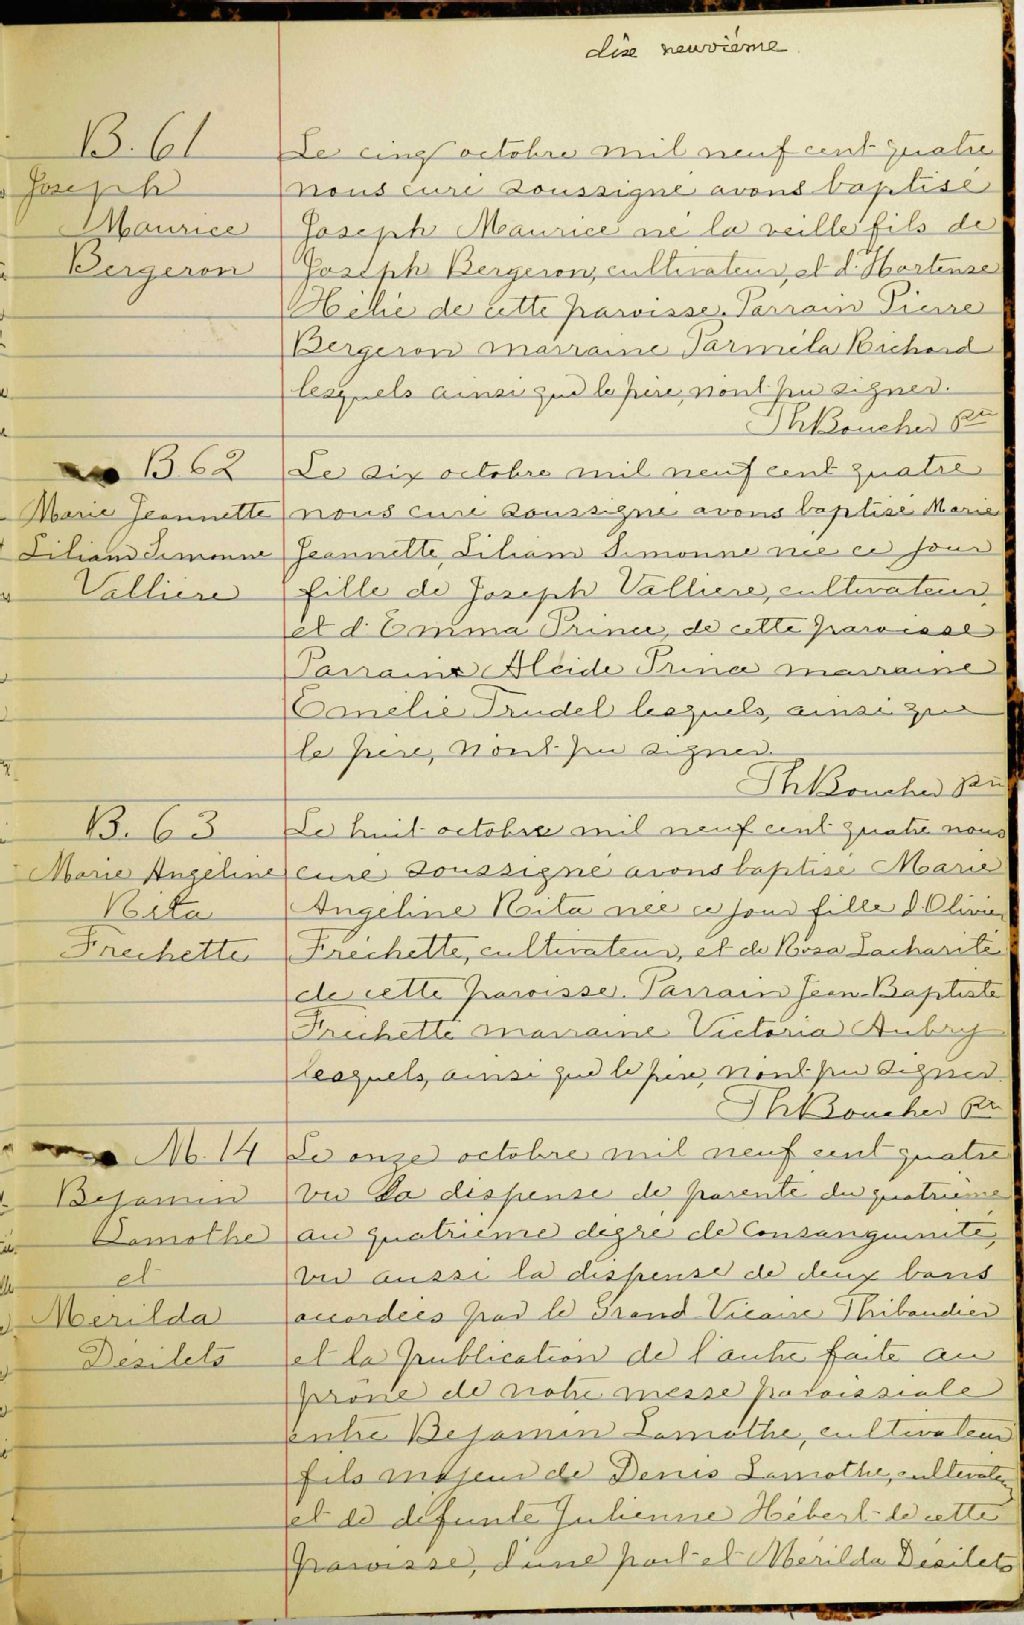 dix neuvième
B. 61
Joseph
Maurice
Bergeron
Le cinq octobre mil neuf cent quatre
nous curé soussigné avons baptisé
Joseph Maurice né la veille fils de
Joseph Bergeron, cultivateur, et d'Hortense
Hélie de cette paroisse. Parrain Pierre
Bergeron marraine Parméla Richard
lesquels ainsi que le père, n'ont pu signer.
ThBoucher Ptre
B. 62
Marie Jeannette
Liliam Simonne
Vallière
Le six octobre mil neuf cent quatre
nous curé soussigné avons baptisé Marie
Jeannette, Liliam Simonne née ce jour
fille de Joseph Vallière, cultivateur,
et d'Emma Prince, de cette paroisse
Parrain Alcide Prince marraine
Emélie Trudel lesquels, ainsi que
le père, n'ont pu signer.
ThBoucher ptre
B. 63
Marie Angéline
Rita
Frechette
Le huit octobre mil neuf cent quatre nous
curé soussigné avons baptisé Marie
Angéline Rita née ce jour fille d'Olivier
Fréchette, cultivateur, et de Rosa Lacharité
de cette paroisse. Parrain Jean-Baptiste
Fréchette marraine Victoria Aubry
lesquels, ainsi que le père, n'ont pu signer.
ThBoucher Ptre
M. 14
Bejamin
Lamothe
et
Mérilda
Désilets
Le onze octobre mil neuf cent quatre
vu la dispense de parenté du quatrième
au quatrième dégré de consanguinité,
vu aussi la dispense de deux bans
accordées par le Grand-Vicaire Thibaudier
et la publication de l'autre faite au
prône de notre messe paroissiale
entre Bejamin Lamothe, cultivateur
fils majeur de Denis Lamothe, cultivateur
et de défunte Julienne Hébert de cette
paroisse, d'une part et Mérilda Désilets